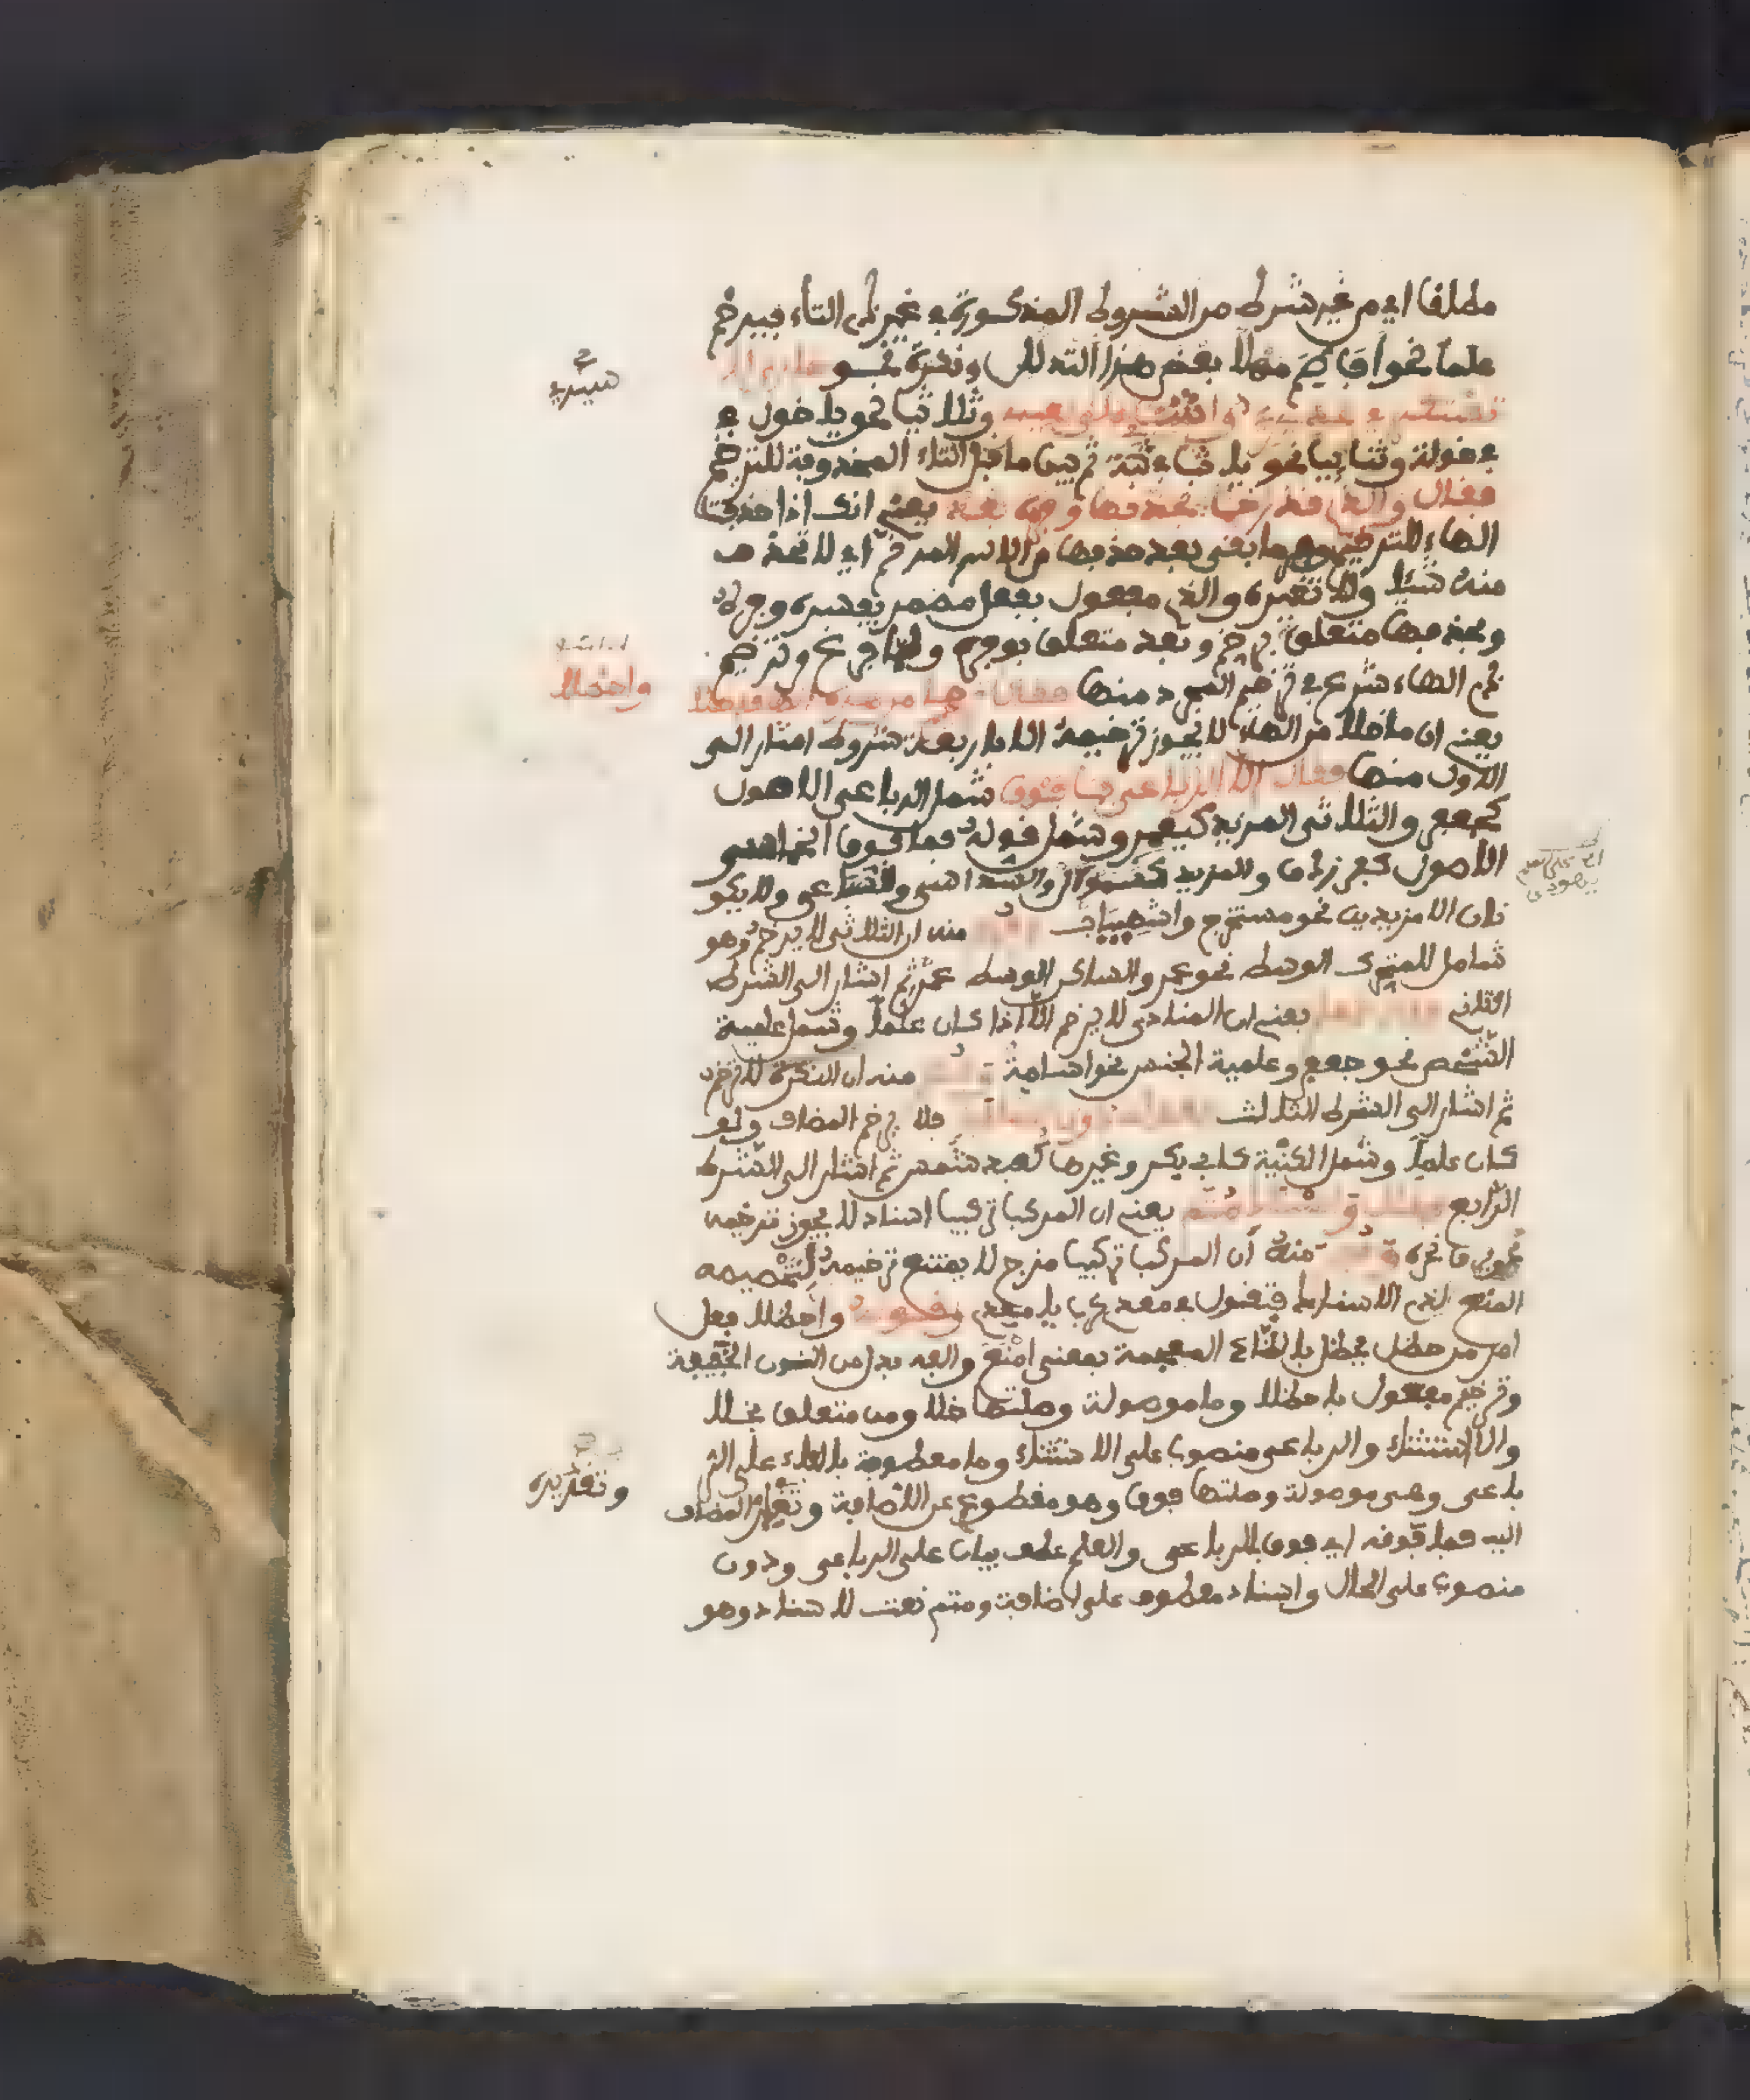 مطلقا اي من غير شرط من الشروط المذكورة في غير ذي التاء فيرخم
علما نحو أفاطم مهلا بعض هذا التدلل ونكرة نحو
وثلاثيا نحو يا خول في
في خولة وثنائيا نحو يا ثب في ثبة ثم بين ما قبل التاء المحذوفة للترخيم
فقال والذي قد رخما بحذفها وفره بعد يعني انك اذا حذفت
الهاء للترخيم ما بقي بعد حذفها من الاسم المرخم اي لا تحذف
منه شيئا ولا تغيره والذي مفعول بفعل مضمر يفسره وفره
وبحذفها متعلق برخم وبعد متعلق بوفره ولما فرغ من ترخيم
ذي الهاء شرع في ترخيم المجرد منها فقال ترخيم ما من هذه الها قد خلا
واحظلا
يعني ان ما خلا من الهاء لا يجوز ترخيمه الا باربعة شروط اشار الى
الاول منها فقال الا الرباعي فما فوق شمل الرباعي الاصول
كجعفر والثلاثي المزيد كيعمر وشمل قوله فما فوق الخماسي
الاصول كفرزدق والمزيد كسموأل والسداسي والسباعي ولا يكو
نان الا مزيدين نحو مستخرج واشهيباب منه ان الثلاثي لا يرخم وهو
شامل للمتحرك الوسط نحو عمر والساكن الوسط ثم اشار الى الشرط
الثاني يعني ان المنادى لا يرخم الا اذا كان علما وشمل علمية
الشخص نحو جعفر وعلمية الجنس نحو اسامة منه ان النكرة لا ترخم
ثم اشار الى الشرط الثالث دون اضافة فلا يرخم المضاف ولو
كان علما وشمل الكنية كابي بكر وغيرها كعبد شمس ثم اشار الى الشرط
الرابع فقال واسناد متم يعني ان المركب تركيب اسناد لا يجوز ترخيمه
منه ان المركب تركيب مزج لا يمتنع ترخيمه لتخصيصه
المنع بذي الاسناد فتقول في معدي كرب يا معدي واحظلا فعل
امر من حظل يحظل بالظاء المعجمة بمعنى امنع والفه بدل من النون الخفيفة
وترخيم مفعول باحظلا وما موصولة وصلتها خلا ومن متعلق بخلا
والا استثناء والرباعي منصوب على الاستثناء وما معطوفة بالفاء على الر
باعي وهي موصولة وصلتها فوق وهو مقطوع عن الاضافة المضاف
وتقديره
اليه فما فوقه اي فوق الرباعي والعلم عطف بيان على الرباعي ودون
منصوب على الحال واسناد معطوف على اضافة ومتم نعت لاسناد وهو